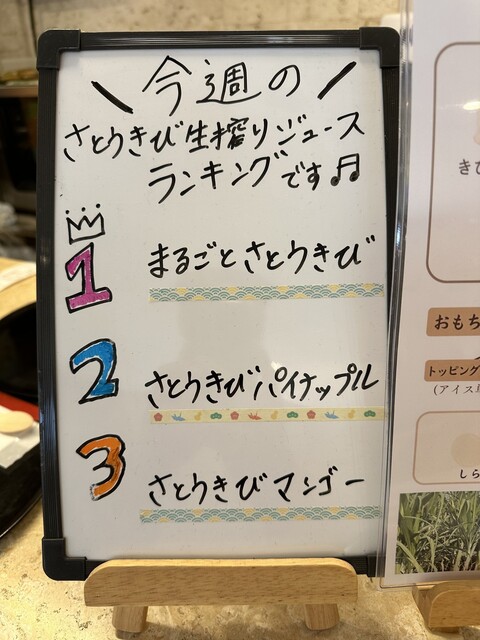 ＼今週の／
さとうきび生搾りジュース
ランキングです♬
1 まるごとさとうきび
2 さとうきびパイナップル
3 さとうきびマンゴー
おもち
トッピング
(アイス
しら